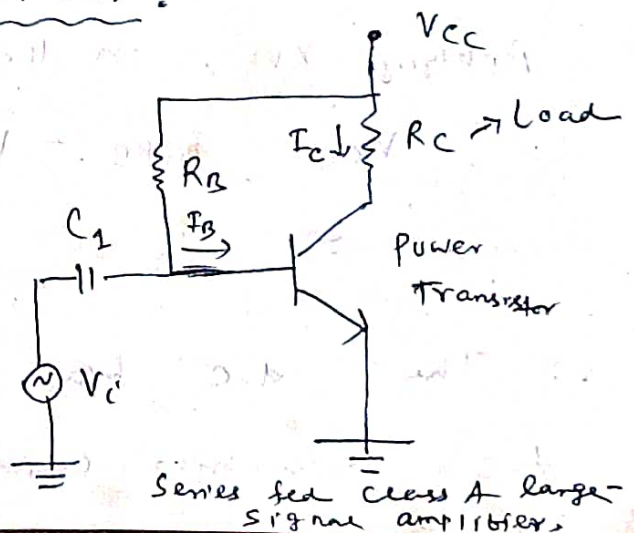 VCC
Ic
Rc
Load
RB
IB
C1
Power
Transistor
Vi
Series fed class A large-
signal amplifier.